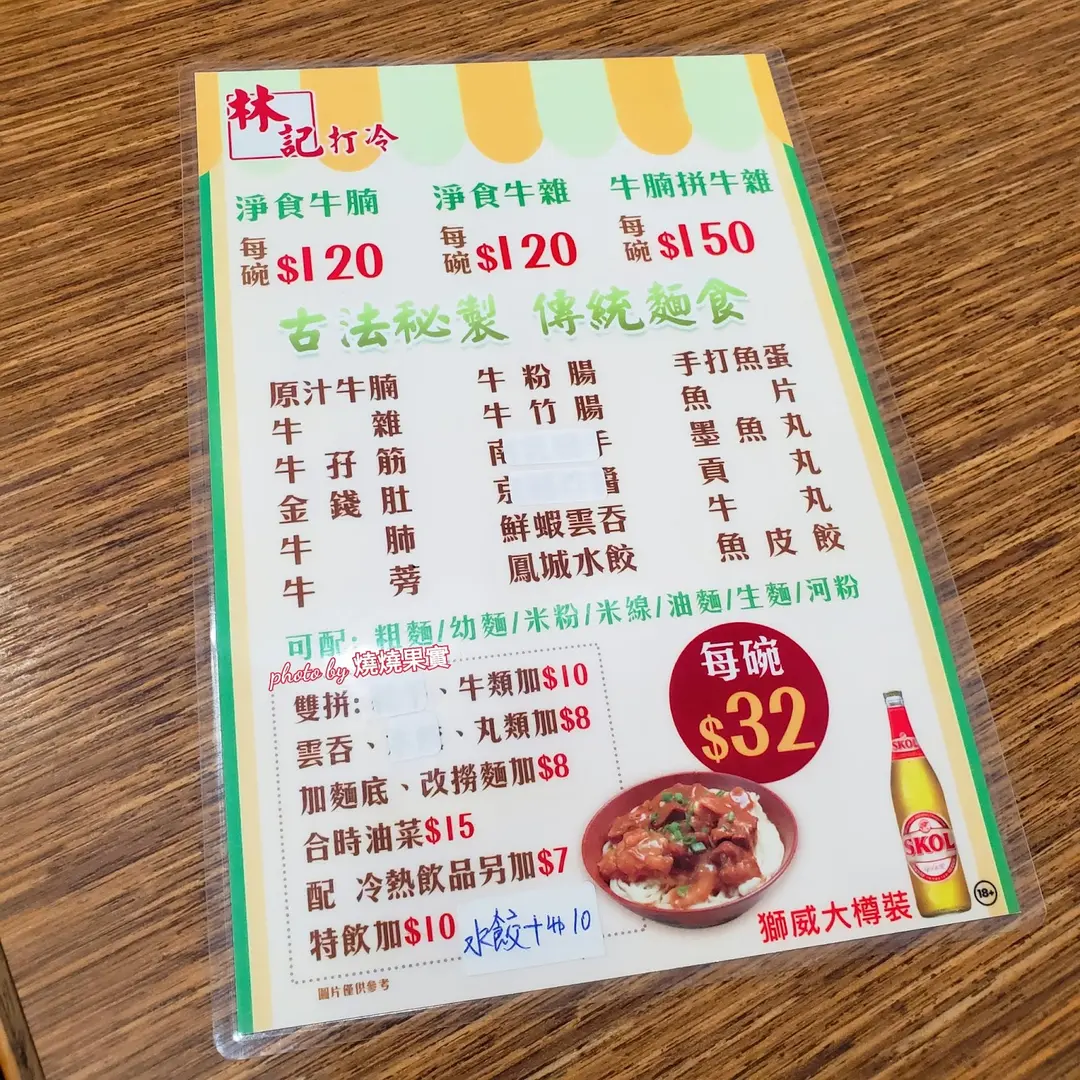 林記打冷
淨食牛腩 淨食牛雜 牛腩拼牛雜
每碗 $120 每碗 $120 每碗 $150
古法秘製 傳統麵食
原汁牛腩 牛粉腸 手打魚蛋
牛雜 牛竹腸 魚片
牛孖筋 南 手 墨魚丸
金錢肚 京 醬 貢丸
牛肺 鮮蝦雲吞 牛丸
牛蒡 鳳城水餃 魚皮餃
可配: 粗麵/幼麵/米粉/米線/油麵/生麵/河粉
photo by 燒燒果實
雙拼: 、牛類加$10
雲吞、 、丸類加$8
加麵底、改撈麵加$8
合時油菜$15
配 冷熱飲品另加$7
特飲加$10
水餃+$10
圖片僅供參考
每碗
$32
SKOL
SKOL
18+
獅威大樽裝